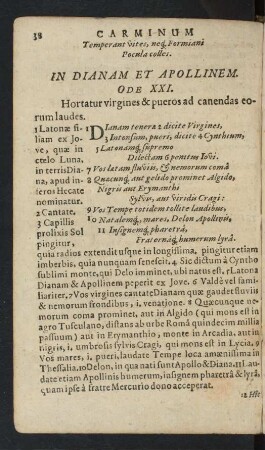 38 CARMINUM
Temperant vites, neq; Formiani
Pocula colles.
IN DIANAM ET APOLLINEM.
ODE XXI.
Hortatur virgines & pueros ad canendas eo-
rum laudes.
1 Latonæ fi-
liam ex Jo-
ve, quæ in
cœlo Luna,
in terris Dia-
na, apud in-
feros Hecate
nominatur.
2 Cantate.
3 Capillis
prolixis Sol
pingitur,
1 DIanam teneræ 2 dicite Virgines,
3 Intonsum, pueri, dicite 4 Cynthium,
5 Latonamq; supremo
Dilectam 6 penitus Iovi.
7 Vos lætam fluviis, & nemorum comâ
8 Quæcunq; aut gelido prominet Algido,
Nigris aut Erymanthi
Sylvis, aut viridis Cragi:
9 Vos Tempe totidem tollite laudibus,
10 Natalemq;, mares, Delon Apollinis,
11 Insignemq; pharetrâ,
Fraternâq; humerum lyrâ.
quia radios extendit usque in longissima, pingitur etiam
imberbis, quia nunquam senescens. 4 Sic dictum à Cyntho
sublimi monte, qui Delo imminet, ubi natus est, 5 Latona
Dianam & Apollinem peperit ex Jove. 6 Valdè vel fami-
liariter, 7 Vos virgines cantate Dianam quæ gaudet fluviis
& nemorum frondibus, i. venatione. 8 Quæcunque ne-
morum coma prominet, aut in Algido (qui mons est in
agro Tusculano, distans ab urbe Româ quindecim millia
passuum) aut in Erymanthio, monte in Arcadia, aut in
nigris, i. umbrosis sylvis Cragi, qui mons est in Lycia, 9
Vos mares, i. pueri, laudate Tempe loca amœnissima in
Thessalia. 10 Delon, in qua nati sunt Apollo & Diana. 11 Lau-
date etiam Apollinis humerum, insignem pharetrâ & lyrâ,
quam ipse à fratre Mercurio dono acceperat.
12 Hic